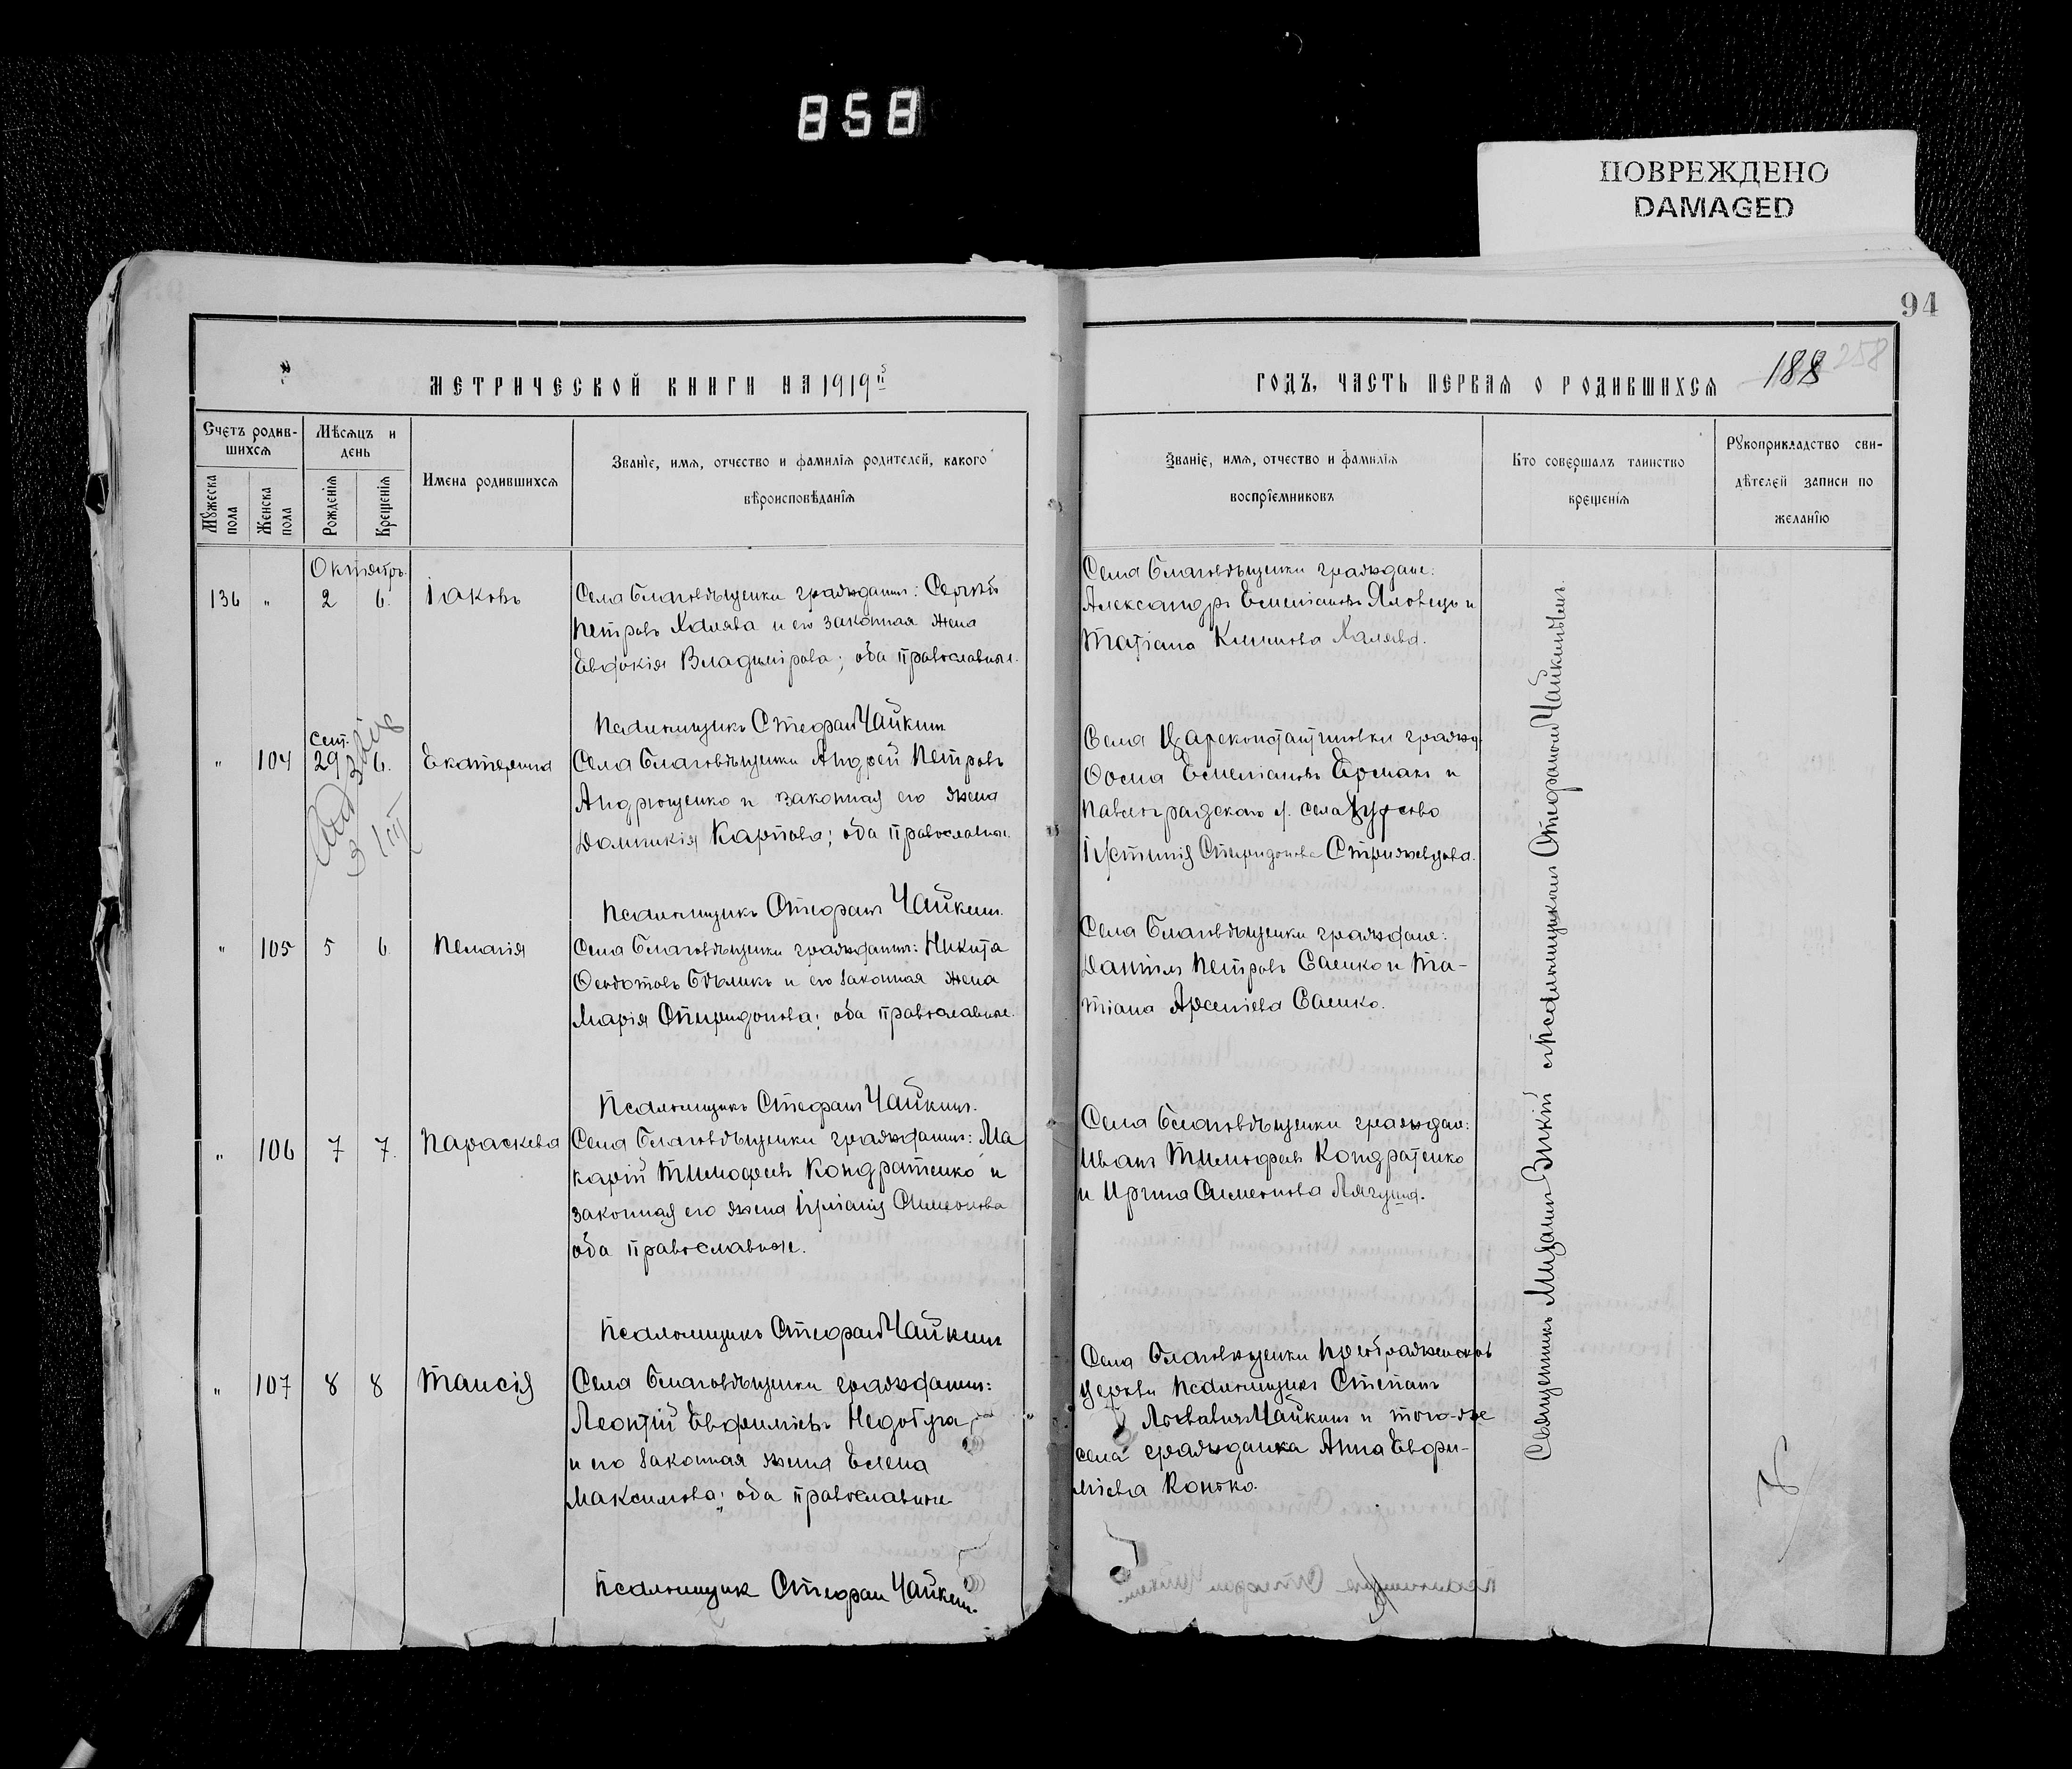 858
ПОВРЕЖДЕНО
DAMAGED
94
МЕТРИЧЕСКОЙ КНИГИ НА 1919й
Счетъ родив-
шихся
Мѣсяцъ и
день
Мужеска
пола
Женска
пола
Рожденія
Крещенія
Имена родившихся
Званіе, имя, отчество и фамилія родителей, какого
вѣроисповѣданія
Октябрь
136 " 2 6. Іаковъ
Села Благовѣщенки гражданинъ: Сергѣй
Петровъ Халява и его законная жена
Евдокія Владимірова; оба православные.
Псаломщикъ Стефанъ Чайкинъ
Сент.
" 104 29 6. Екатерина
Села Благовѣщенки Андрей Петровъ
Андрющенко и законная его жена
Домникія Карпова; оба православные.
Псаломщикъ Стефанъ Чайкинъ.
" 105 5 6 Пелагія
Села Благовѣщенки гражданинъ: Никита
Ѳеодотовъ Бѣликъ и его законная жена
Марія Спиридонова; оба православные.
Псаломщикъ Стефанъ Чайкинъ.
" 106 7 7. Параскева
Села Благовѣщенки гражданинъ: Ма
карій Тимофеевъ Кондратенко и
законная его жена Іуліанія Симеонова
оба православные.
Псаломщикъ Стефанъ Чайкинъ
" 107 8 8 Таисія
Села Благовѣщенки гражданинъ:
Леонтій Евфиміевъ Недобуга
и его законная жена Елена
Максимова; оба православные
Псаломщик Стефан Чайкин.
ГОДЪ, ЧАСТЬ ПЕРВАЯ О РОДИВШИХСЯ
188 258
Званіе, имя, отчество и фамилія
воспріемниковъ
Кто совершалъ таинство
крещенія
Рукоприкладство сви-
дѣтелей записи по
желанію
Села Благовѣщенки граждане:
Александръ Емеліановъ Яловецъ и
Татіана Климова Халява.
Села Цареконстантиновки гражд.
Ѳома Емеліановъ Ермакъ и
Павлоградскаго у. села
Іустинія Спиридонова Стрижевцова.
Села Благовѣщенки граждане:
Даніилъ Петровъ Саенко и Та-
тіана Арсеніева Саенко.
Села Благовѣщенки граждан:
Иванъ Тимофеевъ Кондратенко
и Ирина Симеонова Лягуша.
Села Благовѣщенки Преображенской
церкви Псаломщикъ Стефанъ
Чайкинъ и того-же
села гражданка Анна Евфи-
міева Конько.
Священникъ съ псаломщикомъ Стефаномъ Чайкинымъ.